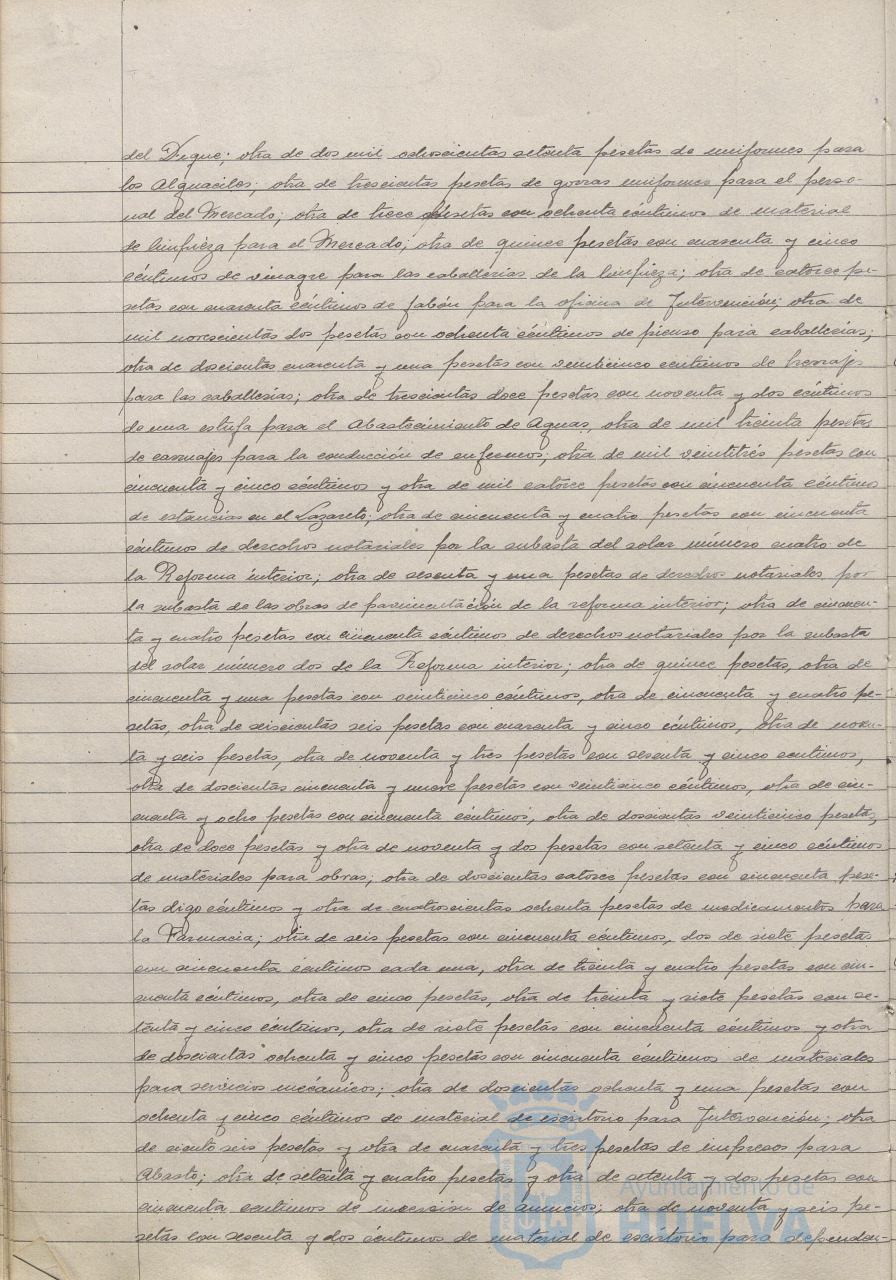 del Dique; otra de dos mil ochocientas setenta pesetas de uniformes para
los Alguaciles; otra de trescientas pesetas de gorras uniformes para el perso-
nal del Mercado; otra de trece pesetas con ochenta céntimos de material
de limpieza para el Mercado; otra de quince pesetas con cuarenta y cinco
céntimos de vinagre para las caballerías de la limpieza; otra de catorce pe-
setas con cuarenta céntimos de jabón para la oficina de Intervención; otra de
mil novecientas dos pesetas con ochenta céntimos de pienso para caballerías;
otra de doscientas cuarenta y una pesetas con veinticinco céntimos de herrajes
para las caballerías; otra de trescientas doce pesetas con noventa y dos céntimos
de una estufa para el Abastecimiento de Aguas, otra de mil treinta pesetas
de carruajes para la conducción de enfermos; otra de mil veintitrés pesetas con
cincuenta y cinco céntimos y otra de mil catorce pesetas con cincuenta céntimos
de estancias en el Lazareto; otra de cincuenta y cuatro pesetas con cincuenta
céntimos de derechos notariales por la subasta del solar número cuatro de
la Reforma interior; otra de sesenta y una pesetas de derechos notariales por
la subasta de las obras de pavimentación de la reforma interior; otra de cincuen-
ta y cuatro pesetas con cincuenta céntimos de derechos notariales por la subasta
del solar número dos de la Reforma interior; otra de quince pesetas, otra de
cincuenta y una pesetas con veinticinco céntimos, otra de cincuenta y cuatro pe-
setas, otra de seiscientas seis pesetas con cuarenta y cinco céntimos, otra de noven-
ta y seis pesetas, otra de noventa y tres pesetas con sesenta y cinco centimos,
otra de doscientas cincuenta y nueve pesetas con veinticinco céntimos, otra de cin-
cuenta y ocho pesetas con cincuenta céntimos, otra de doscientas veinticinco pesetas,
otra de doce pesetas y otra de noventa y dos pesetas con setenta y cinco céntimos
de materiales para obras; otra de doscientas catorce pesetas con cincuenta pese-
tas digo céntimos y otra de cuatrocientas ochenta pesetas de medicamentos para
la Farmacia; otra de seis pesetas con cincuenta céntimos, dos de siete pesetas
con cincuenta céntimos cada una, otra de treinta y cuatro pesetas con cin-
cuenta céntimos, otra de cinco pesetas, otra de treinta y siete pesetas con se-
tenta y cinco céntimos, otra de siete pesetas con cincuenta céntimos y otra
de doscientas ochenta y cinco pesetas con cincuenta céntimos de materiales
para servicios mecánicos; otra de doscientas ochenta y una pesetas con
ochenta y cinco céntimos de material de escritorio para Intervención; otra
de ciento seis pesetas y otra de cuarenta y tres pesetas de impresos para
Abasto; otra de setenta y cuatro pesetas y otra de setenta y dos pesetas con
cincuenta centimos de insercion de anuncios; otra de noventa y seis pe-
setas con sesenta y dos céntimos de material de escritorio para dependen-
Ayuntamiento de
HUELVA